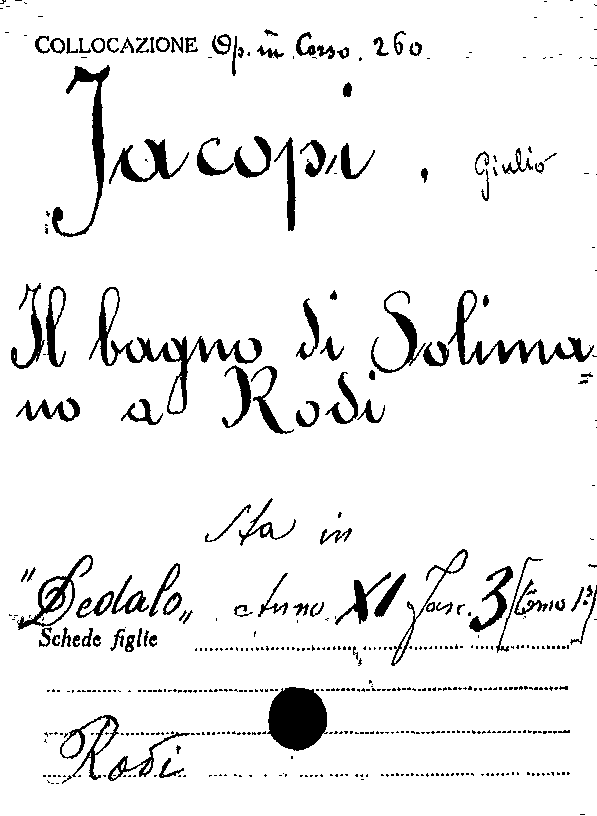 COLLOCAZIONE Op. in Corso. 260
Jacopi. Giulio
Il bagno di Solima=
no a Rodi
Sta in
"Dedalo" Anno XI Fasc. 3 (Tomo 1º)
Schede figlie
Rodi